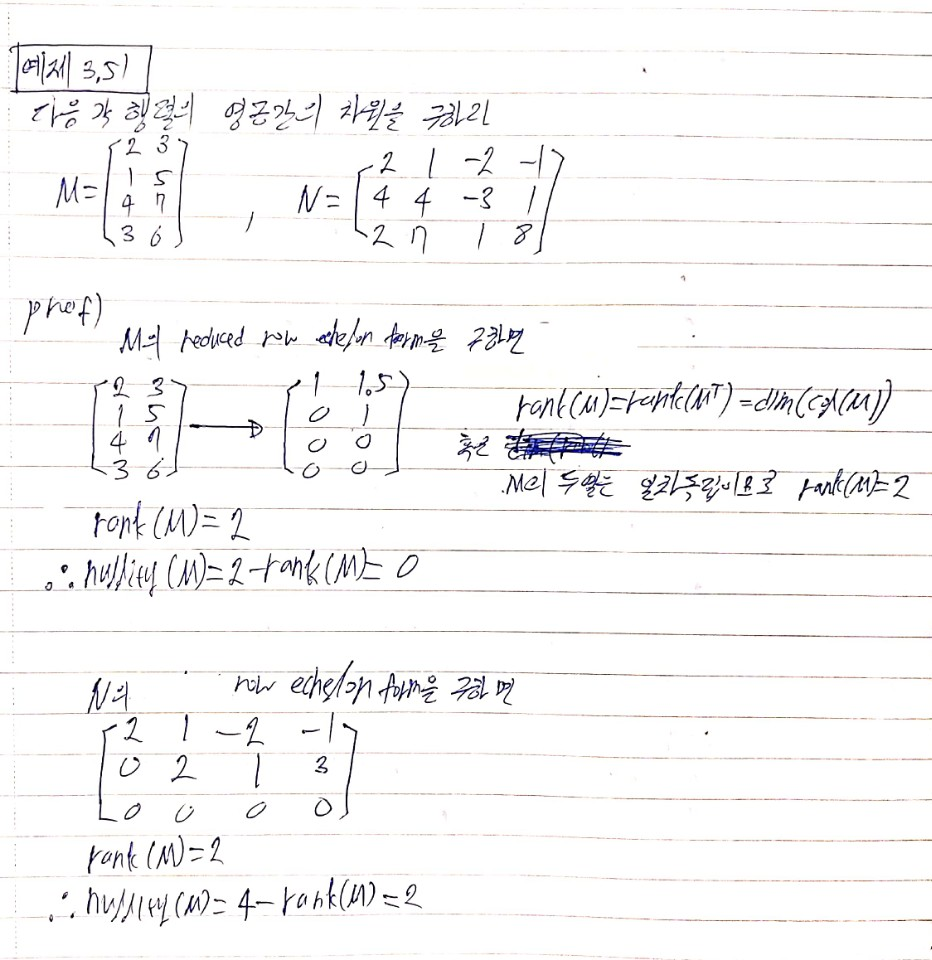 예제 3.51
다음 각 행렬의 영공간의 차원을 구하라
M = [2 3; 1 5; 4 7; 3 6] , N = [2 1 -2 -1; 4 4 -3 1; 2 7 1 8]
proof)
M의 reduced row echelon form을 구하면
[2 3; 1 5; 4 7; 3 6] → [1 1.5; 0 1; 0 0; 0 0]
rank(M)=rank(M^T)=dim(col(M))
혹은
M의 두 열은 일차독립이므로 rank(M)=2
rank(M)=2
∴ nullity(M)=2-rank(M)=0
N의 row echelon form을 구하면
[2 1 -2 -1; 0 2 1 3; 0 0 0 0]
rank(M)=2
∴ nullity(M)=4-rank(M)=2